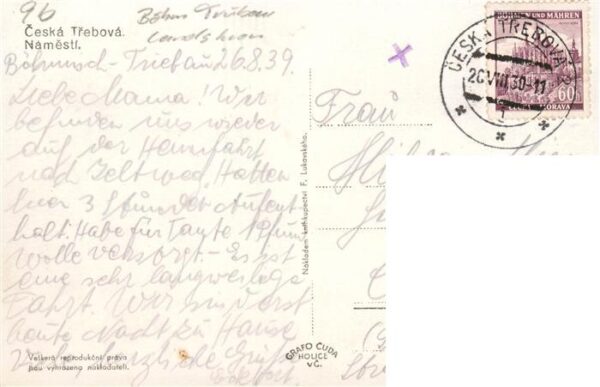 96
Böhm Trübau
Landskron
Česká Třebová.
Náměstí.
Böhmisch-Trübau 26.8.39.
Liebe Mama! Wir
befinden uns wieder
auf der Heimfahrt
nach Zeltweg. Hatten
hier 3 Stunden Aufent
halt. Habe für Tante
wolle versorgt. Es ist
eine sehr langweilige
Fahrt. Wir sind erst
heute Nacht zu Hause
herzliche Grüße
Veškerá reprodukční práva
jsou vyhrazena nakladateli.
Nákladem knihkupectví F. Lukavského.
GRAFO ČUDA
HOLICE
V Č.
Frau
ČESKÁ TŘEBOVÁ
26.VIII.39-11
BÖHMEN UND MÄHREN
60
MORAVA